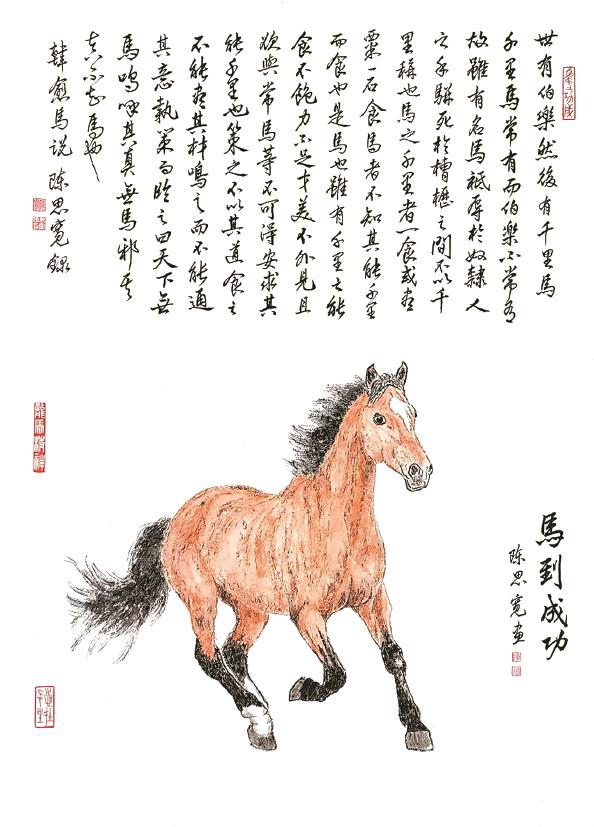 世有伯樂然後有千里馬
千里馬常有而伯樂不常有
故雖有名馬祇辱於奴隸人
之手駢死於槽櫪之間不以千
里稱也馬之千里者一食或盡
粟一石食馬者不知其能千里
而食也是馬也雖有千里之能
食不飽力不足才美不外見且
欲與常馬等不可得安求其
能千里也策之不以其道食之
不能盡其材鳴之而不能通
其意執策而臨之曰天下無
馬嗚呼其真無馬邪其
真不知馬也
韓愈馬說 陈思寬錄
龍馬精神
馬到成功
陈思寬畫
志在千里